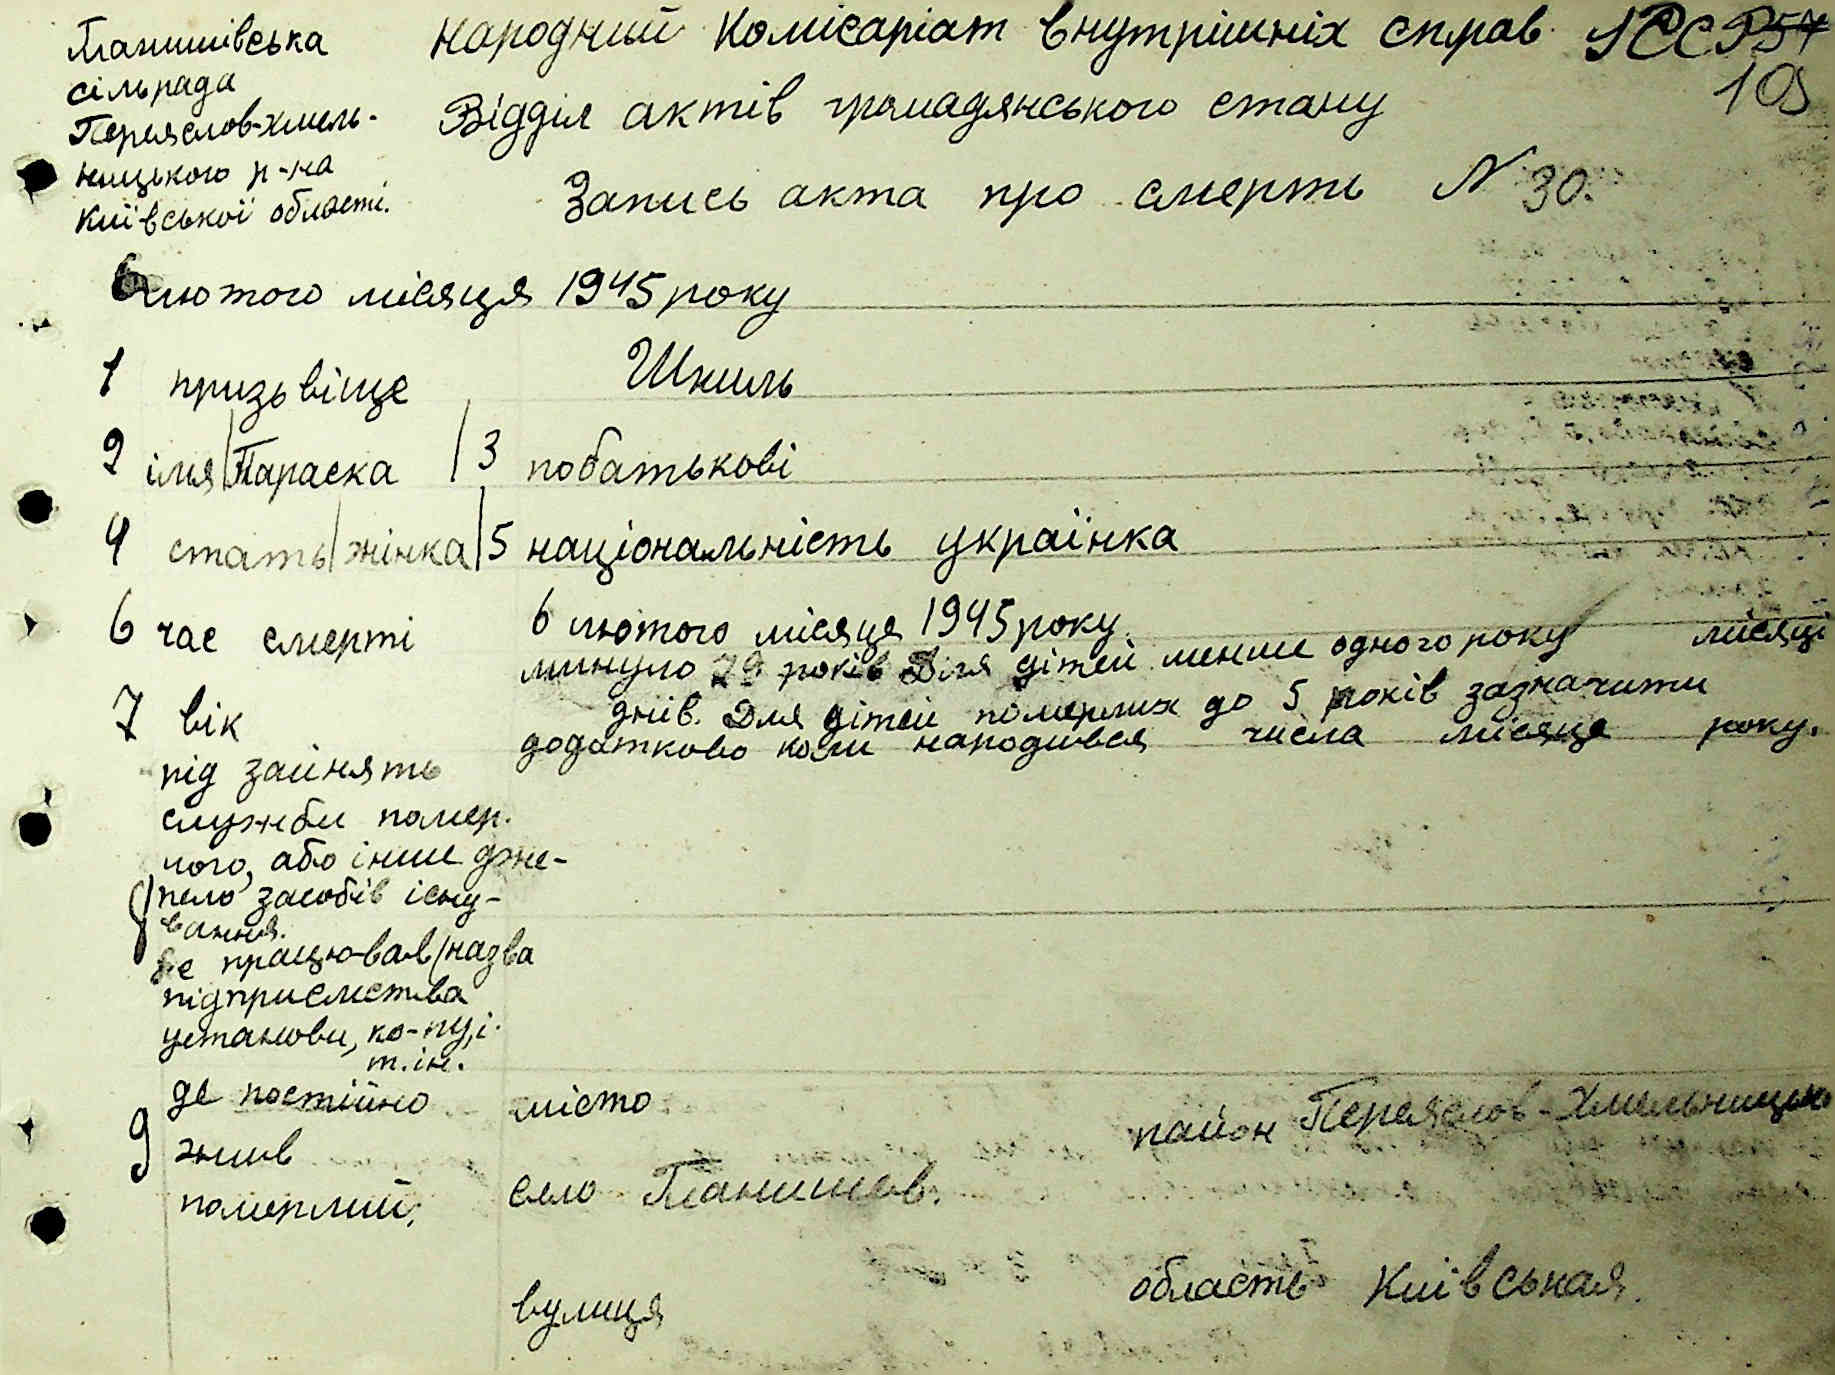 Ташанська
сільрада
Переяслов-Хмель-
ницького р-на
Київської області.
Народний Комісаріат Внутрішніх справ УССР 57
105
Відділ актів громадянського стану
Запись акта про смерть N 30.
6 лютого місяця 1945 року
1 призьвіще Шкиль
2 імя Параска 3 побатькові
4 стать жінка 5 національність українка
6 час смерті 6 лютого місяця 1945 року
7 вік минуло 79 років Для дітей менше одного року місяці
днів. Для дітей померлих до 5 років зазначити
додатково коли народився числа місяця року.
8 під зайнять
служби помер.
чого, або інше дже-
рело засобів існу-
вання.
де працював/назва
підприємства
установи, ко-пу, і.
т.ін.
9 де постійно місто район Переяслов-Хмельницько
жив
померлий; село
вулиця область Київськая.